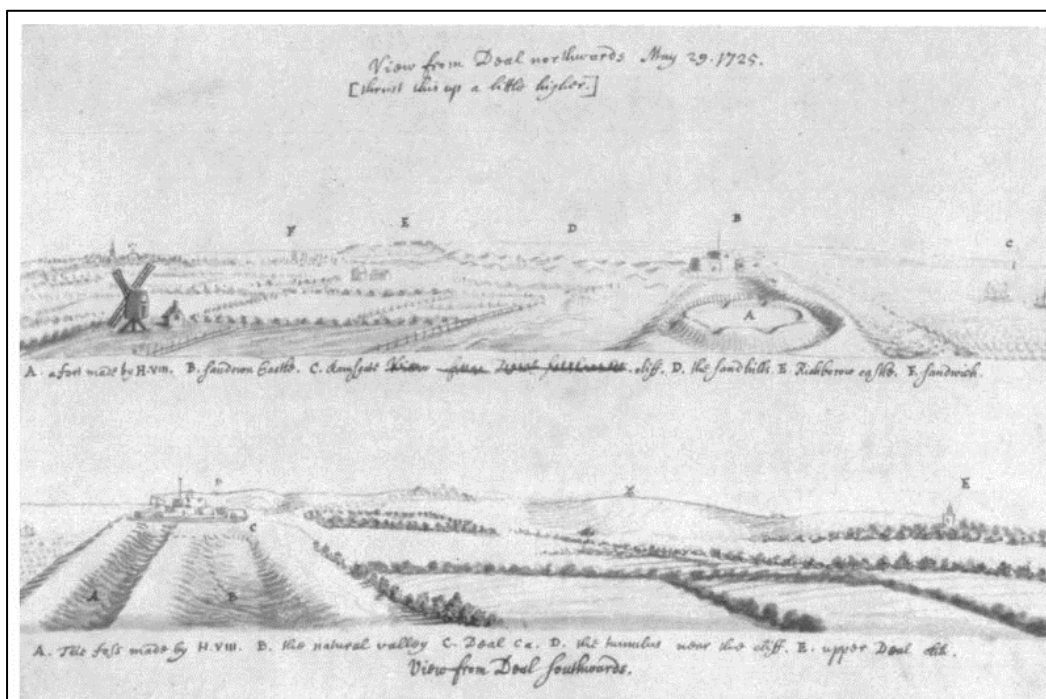 View from Deal northwards May 29. 1725.
[thrust this up a little higher.]
F E D B C
A
A. a fort made by H. VIII. B. Sandown Castle. C. Ramsgate cliff. D. the Sandhills. E. Richborow castle. F. Sandwich.
D E
C
A B
A. The foss made by H. VIII. B. the natural valley C. Deal Ca. D. the tumulus near the cliff. E. upper Deal
View from Deal Southwards.